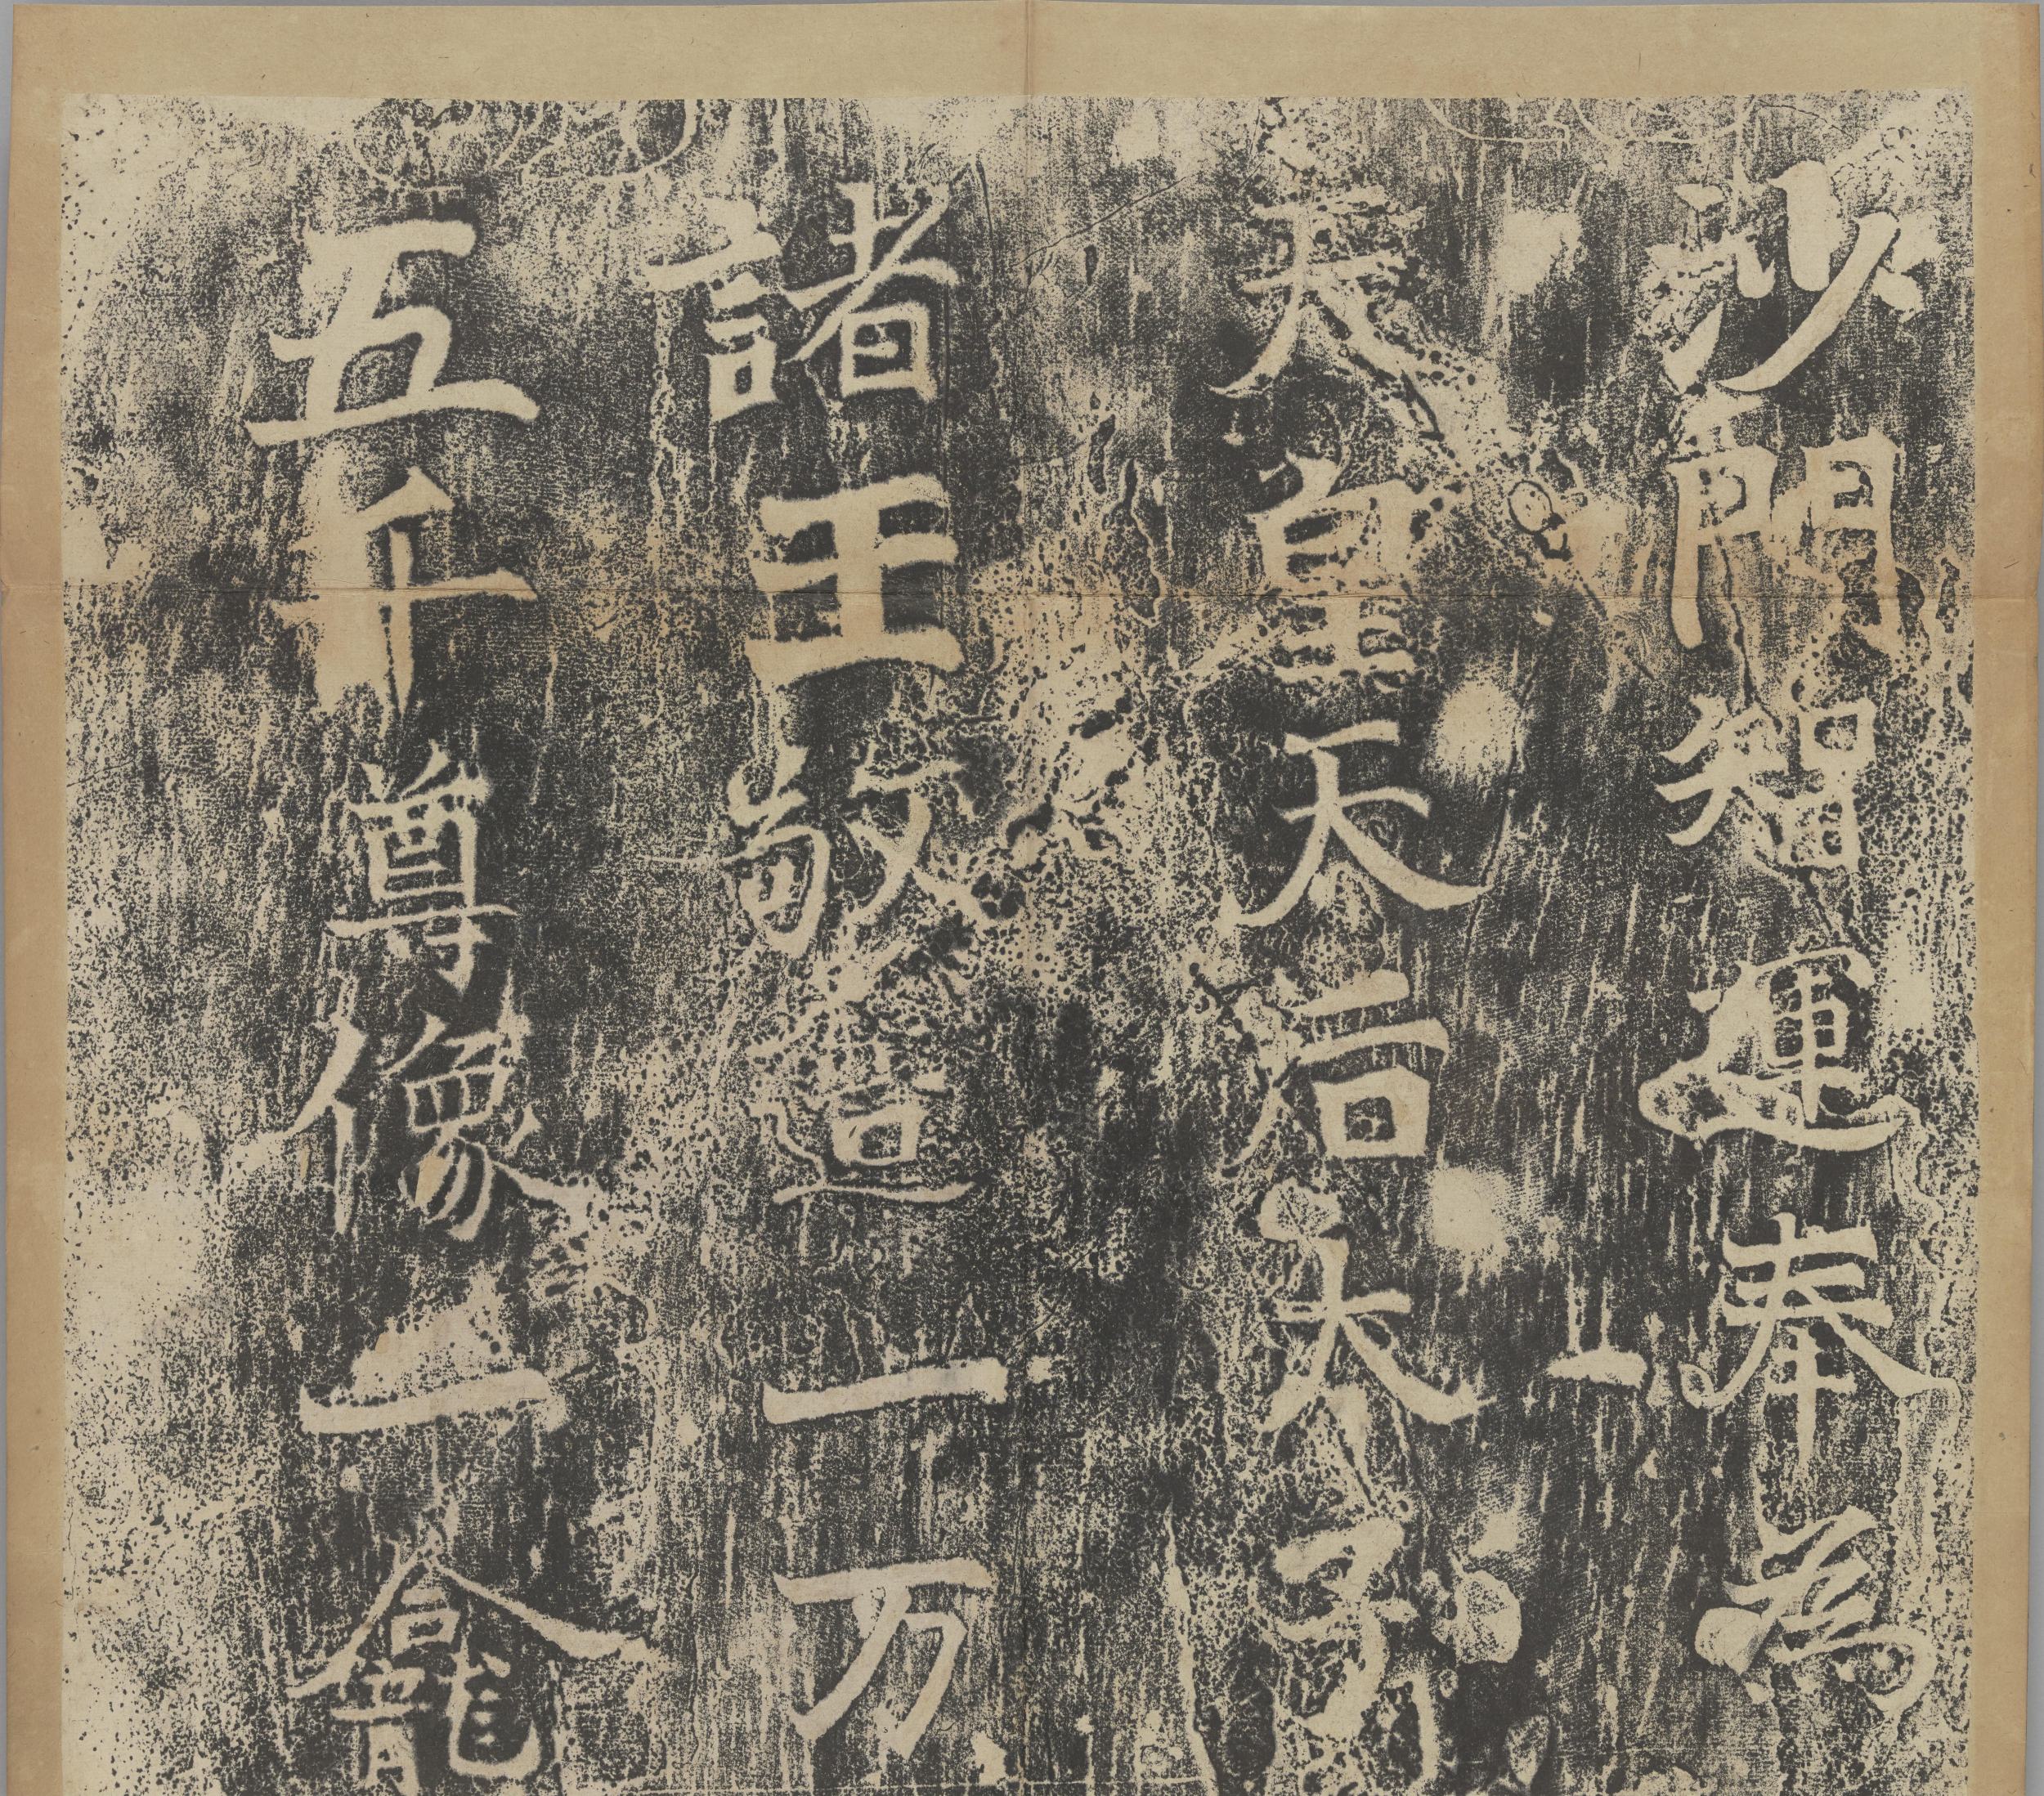 沙門智運奉為
天皇天后太子
諸王敬造一万
五千尊像一龕